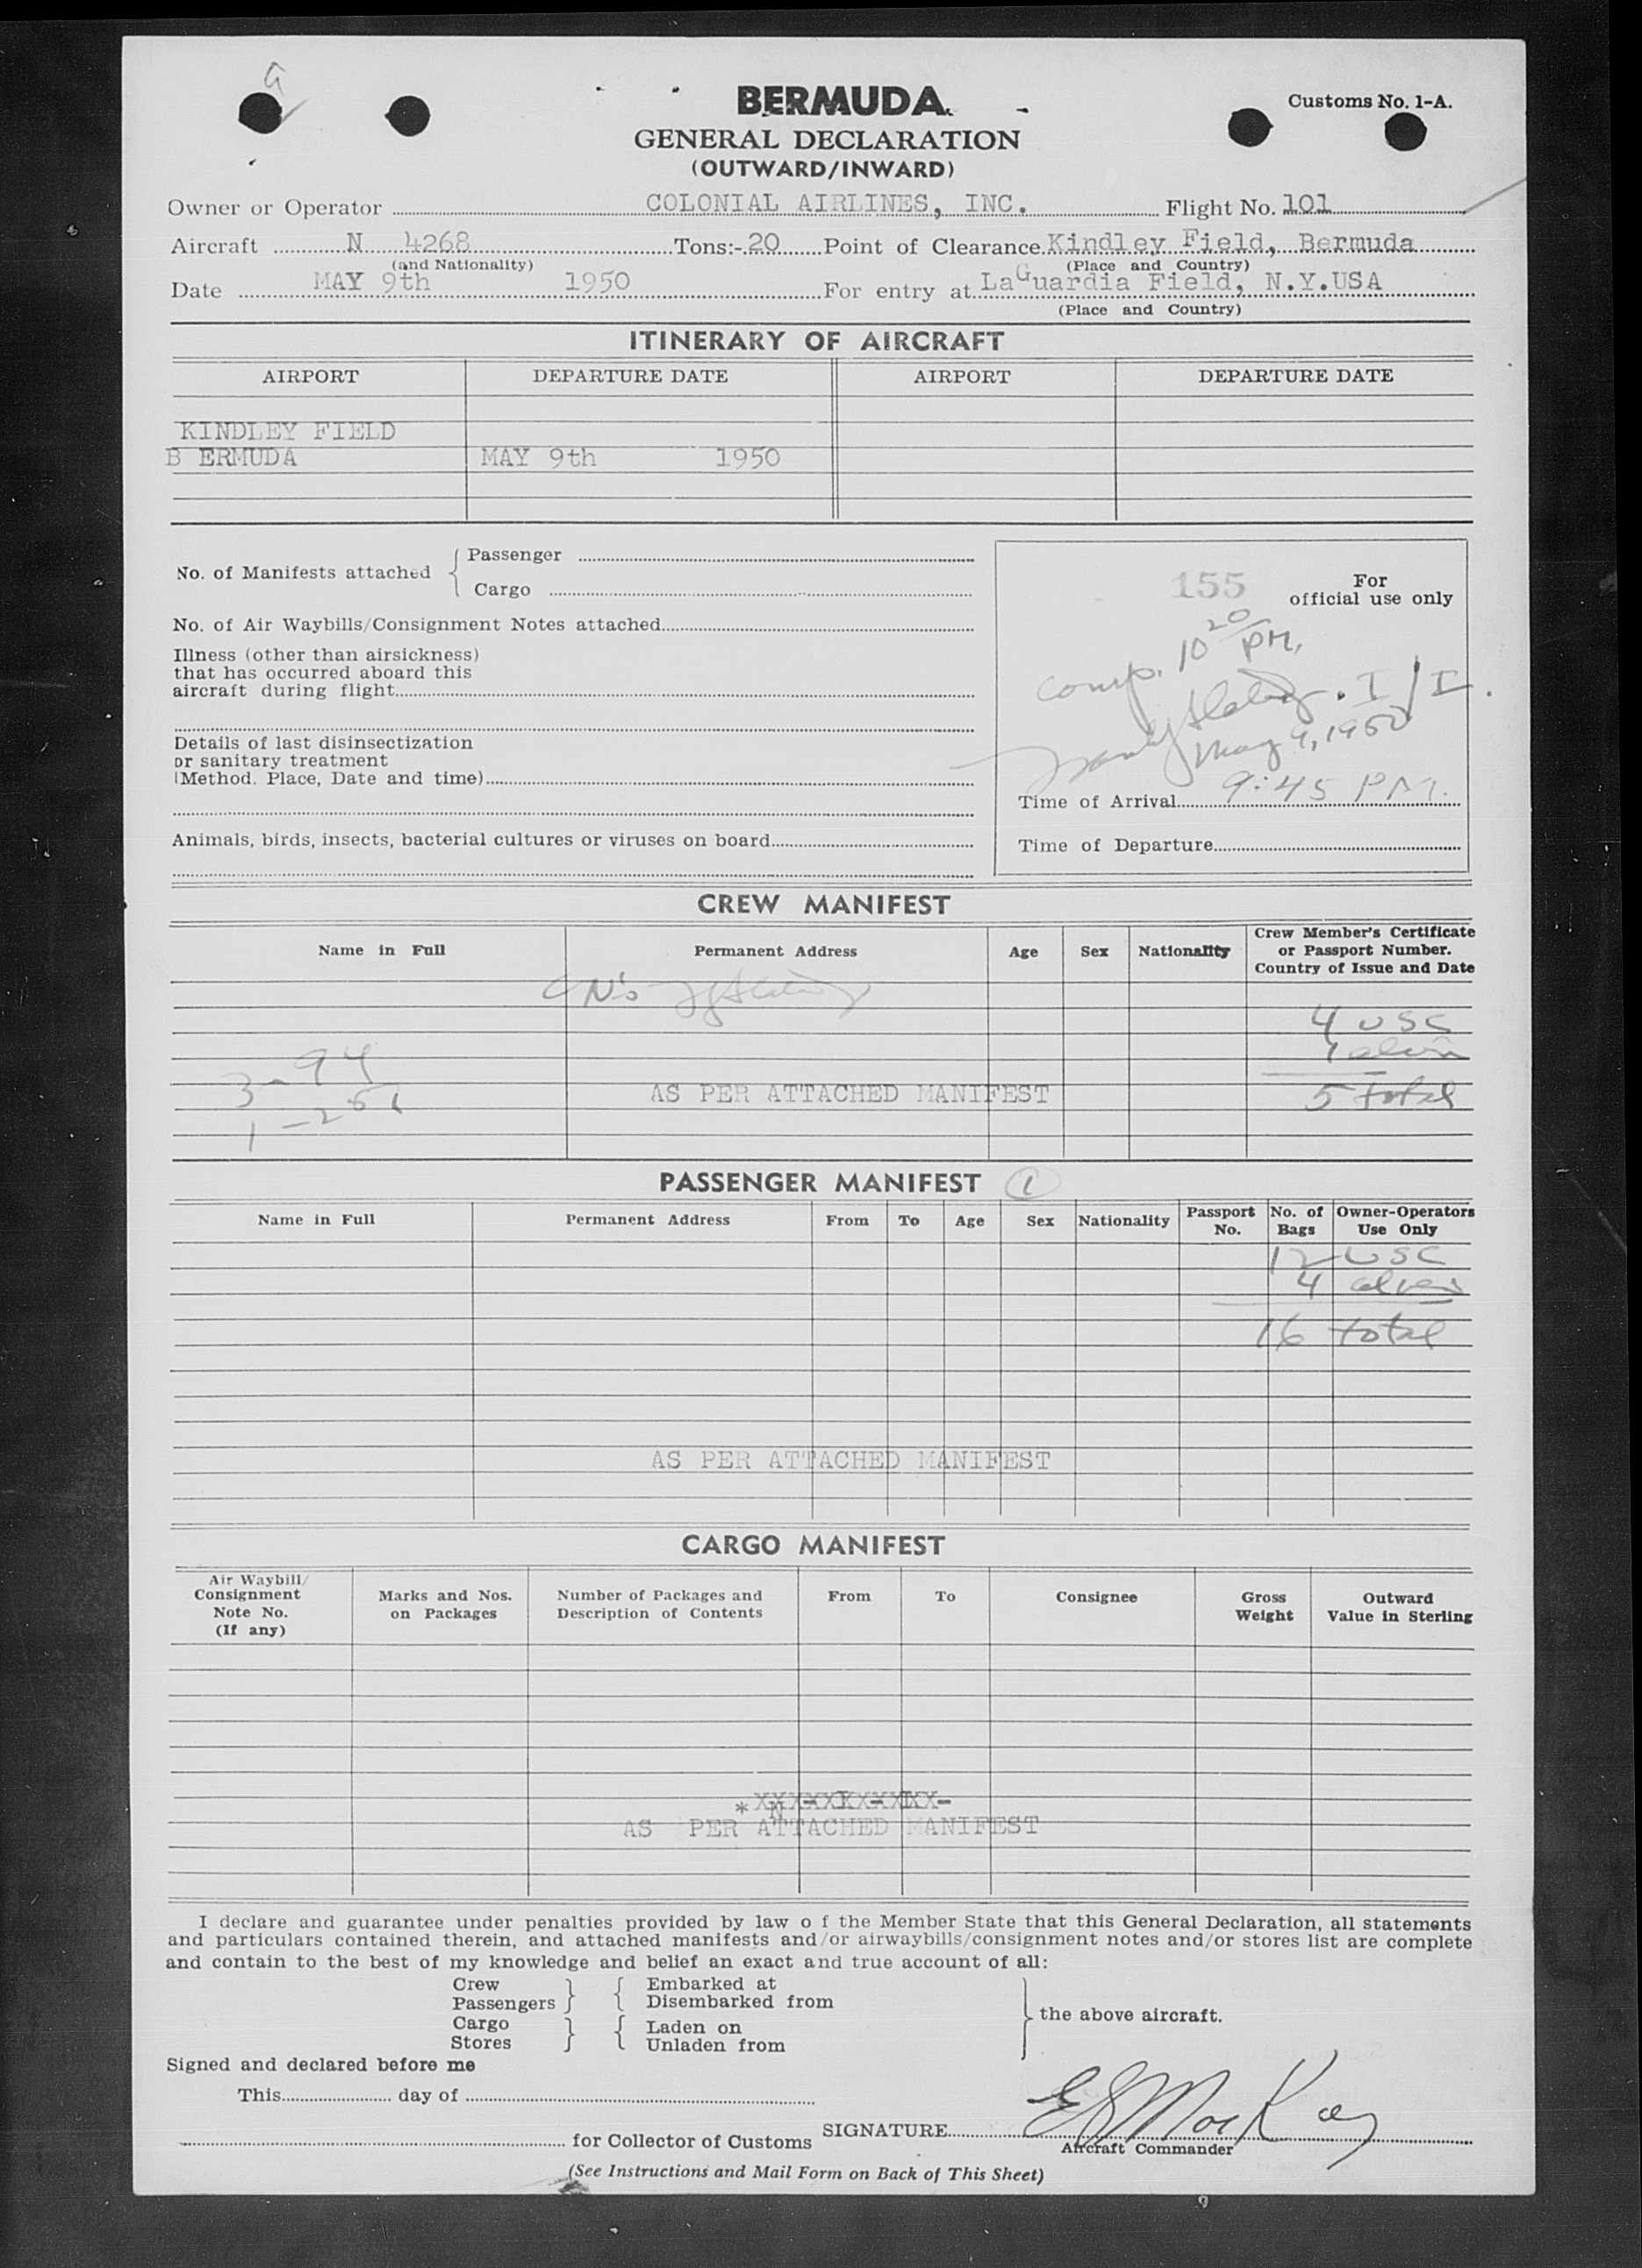 BERMUDA
Customs No. 1-A.
GENERAL DECLARATION
(OUTWARD/INWARD)
Owner or Operator COLONIAL AIRLINES, INC. Flight No. 101
Aircraft N 4268 Tons:- 20 Point of Clearance Kindley Field, Bermuda
(and Nationality) (Place and Country)
Date MAY 9th 1950 For entry at LaGuardia Field, N.Y.USA
(Place and Country)
ITINERARY OF AIRCRAFT
AIRPORT DEPARTURE DATE AIRPORT DEPARTURE DATE
KINDLEY FIELD
B ERMUDA MAY 9th 1950
No. of Manifests attached { Passenger
Cargo
No. of Air Waybills/Consignment Notes attached
Illness (other than airsickness)
that has occurred aboard this
aircraft during flight
Details of last disinsectization
or sanitary treatment
(Method. Place, Date and time)
Animals, birds, insects, bacterial cultures or viruses on board
155 For
official use only
Comp. 10 20/ PM.
I/I.
May 9, 1950
Time of Arrival 9:45 PM.
Time of Departure
CREW MANIFEST
Name in Full Permanent Address Age Sex Nationality Crew Member's Certificate
or Passport Number.
Country of Issue and Date
4 USC
1 alien
3 - 94
AS PER ATTACHED MANIFEST 5 total
1 - 251
PASSENGER MANIFEST 1
Name in Full Permanent Address From To Age Sex Nationality Passport No. No. of Bags Owner-Operators Use Only
12 USC
4 aliens
16 total
AS PER ATTACHED MANIFEST
CARGO MANIFEST
Air Waybill/
Consignment
Note No.
(If any) Marks and Nos.
on Packages Number of Packages and
Description of Contents From To Consignee Gross
Weight Outward
Value in Sterling
AS PER ATTACHED MANIFEST
I declare and guarantee under penalties provided by law o f the Member State that this General Declaration, all statements
and particulars contained therein, and attached manifests and/or airwaybills/consignment notes and/or stores list are complete
and contain to the best of my knowledge and belief an exact and true account of all:
Crew } { Embarked at
Passengers Disembarked from
} the above aircraft.
Cargo } { Laden on
Stores Unladen from
Signed and declared before me
This day of
for Collector of Customs SIGNATURE E S MacKay
Aircraft Commander
(See Instructions and Mail Form on Back of This Sheet)